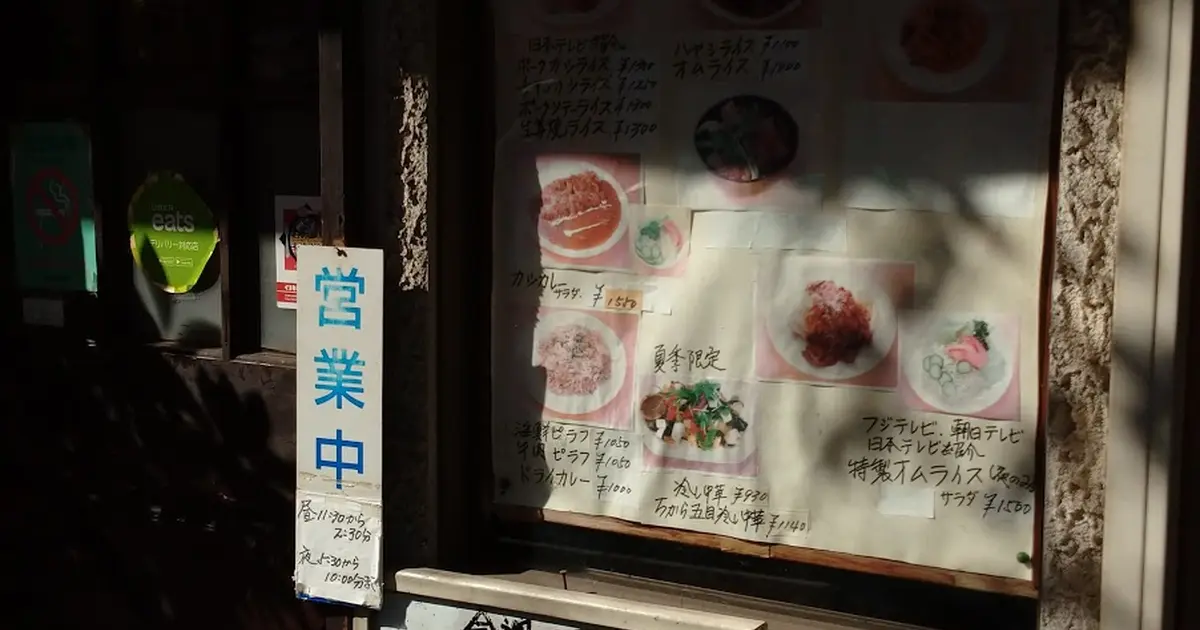 eats
デリバリー対応店
営業中
昼11:30から
2:30分
夜5:30から
10:00分まで
日本テレビ紹介
ポークカツライス
チキンカツライス ¥1250
ポークソテーライス ¥1300
生姜焼ライス ¥1300
ハヤシライス
オムライス
カツカレー
サラダ ¥1580
海鮮ピラフ ¥1050
牛肉ピラフ ¥1050
ドライカレー ¥1000
夏季限定
冷し中華 ¥930
ちから五目冷し中華 ¥1140
フジテレビ、朝日テレビ
日本テレビ紹介
特製オムライス
サラダ ¥1500